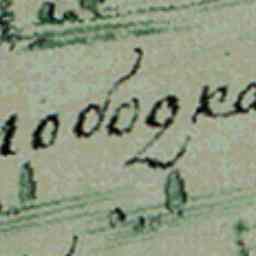 лободка